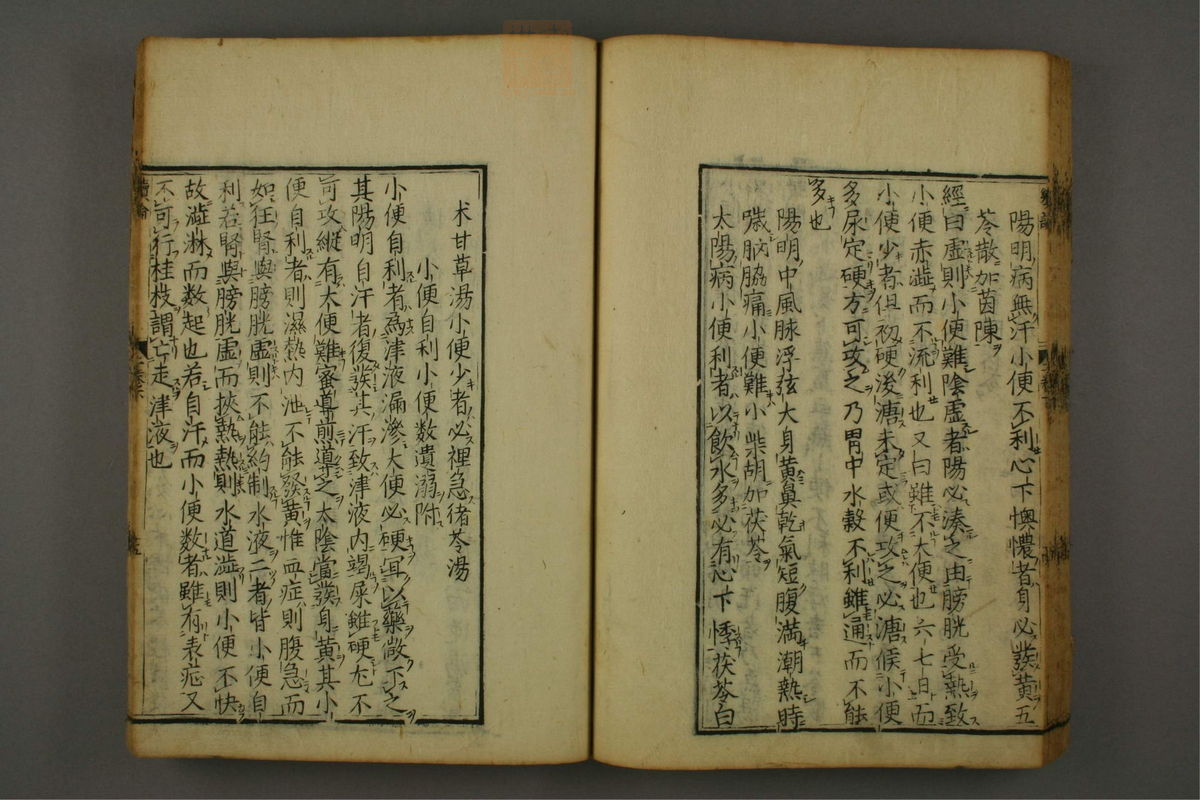 陽明病無汗小便不利心下懊憹者身必發黃五
苓散加茵陳
經曰虛則小便難陰虛者陽必湊之由膀胱受熱致
小便赤澁而不流利也又曰雖不大便也六七日而
小便少者但初硬後溏未定或便攻之必溏候小便
多尿定硬方可攻之乃胃中水穀不利雖通而不能
多也
陽明中風脉浮弦大身黃鼻乾氣短腹滿潮熱時
噦脇痛小便難小柴胡加茯苓
太陽病小便利者以飲水多必有心下悸茯苓白
朮甘草湯小便少者必裡急猪苓湯
小便自利小便数遺溺附
小便自利者為津液漏滲大便必硬冝以藥敵下之
其陽明自汗者復發其汗致津液內竭屎雖硬尤不
可攻縱有大便難蜜導前導之太陰當發身黃其小
便自利者則濕熱內泄不能發黃惟血症則腹急而
如狂腎與膀胱虛則不能約制水液二者皆小便自
利若腎與膀胱虛而挾熱熱則水道澁則小便不快
故澁淋而数起也若自汗而小便数者雖有表症又
不可行桂枝謂亡走津液也